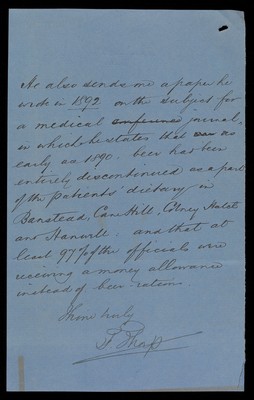 He also sends me a paper he
wrote in 1892 on the subject for
a medical conference journal,
in which he states that was as
early as 1890. beer had been
entirely discontinued as a part
of the patients' dietary in
Banstead, Cane Hill, Colney Hatch
and Hanwell. and that at
least 97% of the officials were
receiving a money allowance
instead of beer-rations.
Yours truly